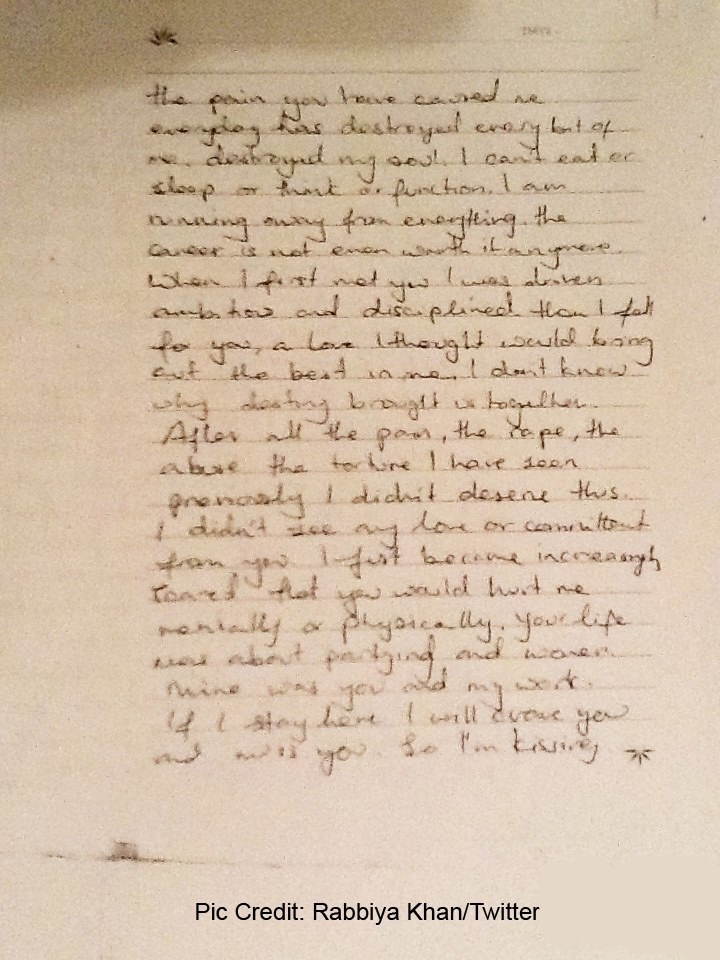 DATE
the pain you have caused me
everyday has destroyed every bit of
me, destroyed my soul. I can't eat or
sleep or think or function. I am
running away from everything. the
career is not even worth it anymore.
When I first met you I was driven
ambitious and disciplined. then I fell
for you, a love I thought would bring
out the best in me. I don't know
why destiny brought us together.
After all the pain, the rape, the
abuse the torture I have seen
previously I didn't deserve this.
I didn't see any love or commitment
from you. I just became increasingly
scared that you would hurt me
mentally or physically. Your life
was about partying and women.
Mine was you and my work.
If I stay here I will crave you
and miss you. So I'm kissing
Pic Credit: Rabbiya Khan/Twitter